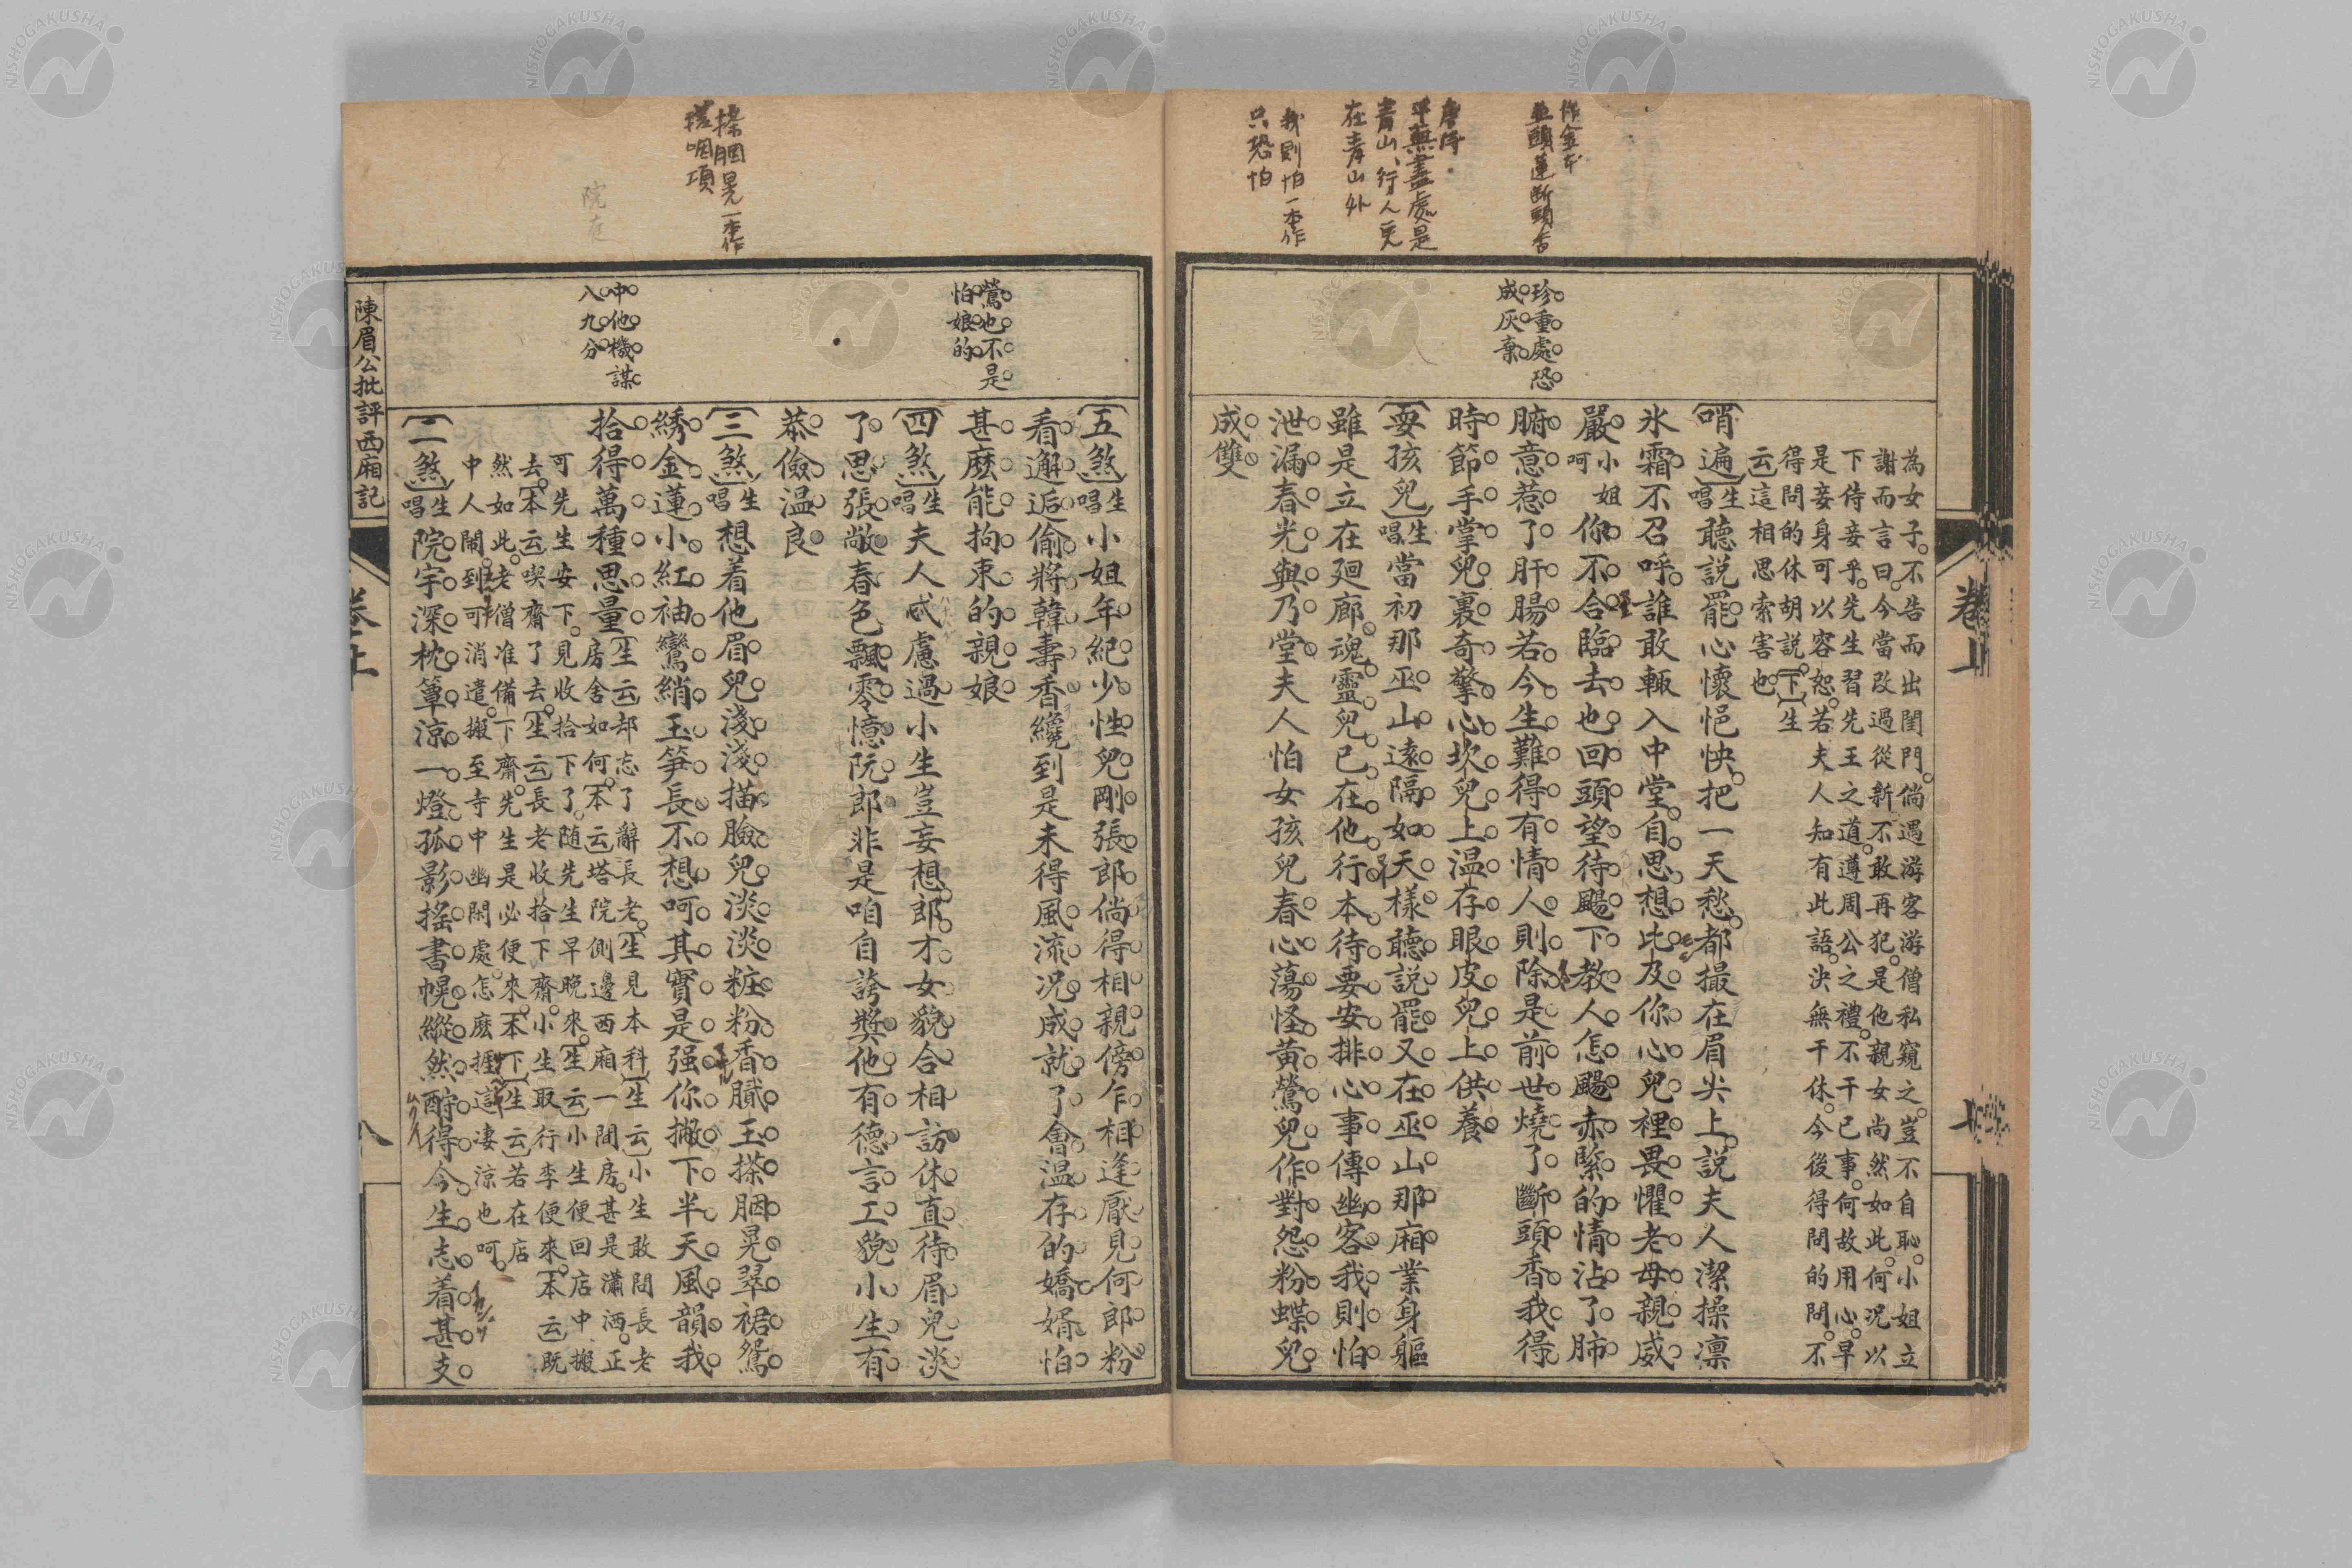 作金本
並頭蓮斷頭香
唐詩
平蕪盡處是
青山行人更
在青山外
我則怕一本作
只恐怕
珍重處恐
成灰棄
卷上
為女子不告而出閨門倘遇游客游僧私窺之豈不自恥小姐立
謝而言曰今當改過從新不敢再犯是他親女尚然如此何況以
下侍妾乎先生習先王之道遵周公之禮不干己事何故用心早
是妾身可以容恕若夫人知有此語決無干休今後得問的問不
得問的休胡説【下】【生
云】這相思索害也
【哨遍】生唱聽説罷心懷悒怏把一天愁都撮在眉尖上説夫人潔操凛
氷霜不召呼誰敢輙入中堂自思想比及你心兒裡畏懼老母親威
嚴小姐呵你不合臨去也回頭望待颺下教人怎颺赤緊的情沾了肺
腑意惹了肝腸若今生難得有情人則除是前世燒了斷頭香我得
時節手掌兒裏奇擎心坎兒上温存眼皮兒上供養
【耍孩兒】生唱當初那巫山遠隔如天樣聽説罷又在巫山那廂業身軀
雖是立在廻廊魂靈兒已在他行本待要安排心事傳幽客我則怕
泄漏春光與乃堂夫人怕女孩兒春心蕩怪黃鶯兒作對怨粉蝶兒
成雙
搽胭晃一本作
搓咽項
院庭
鶯也不是
怕娘的
中他機謀
八九分
【五煞】生唱小姐年紀少性兒剛張郎倘得相親傍乍相逢厭見何郎粉
看邂逅偷將韓壽香纔到是未得風流況成就了會温存的嬌婿怕
甚麽能拘束的親娘
【四煞】生唱夫人忒慮過小生豈妄想郎才女貌合相訪休直待眉兒淡
了思張敞春色飄零憶阮郎非是咱自誇獎他有德言工貌小生有
恭儉温良
【三煞】生唱想着他眉兒淺淺描臉兒淡淡粧粉香膩玉搽胭晃翠裙鴛
綉金蓮小紅袖鸞綃玉笋長不想呵其實是强你撇下半天風韻我
拾得萬種思量【生云】却忘了辭長老【生見本科】【生云】小生敢問長老
房舍如何【本云】塔院側邊西廂一間房甚是瀟洒正
可先生安下見收拾下了随先生早晚來【生云】小生便回店中搬
去【本云】喫齋了去【生云】長老收拾下齋小生取行李便來【本云】既
然如此老僧准備下齋先生是必便來【本下】【生云】若在店
中人鬧到可消遣搬至寺中幽閑處怎麽捱這凄涼也呵
【二煞】生唱院宇深枕簟涼一燈孤影搖書幌縱然酧得今生志着甚支
陳眉公批評西廂記
卷上
八